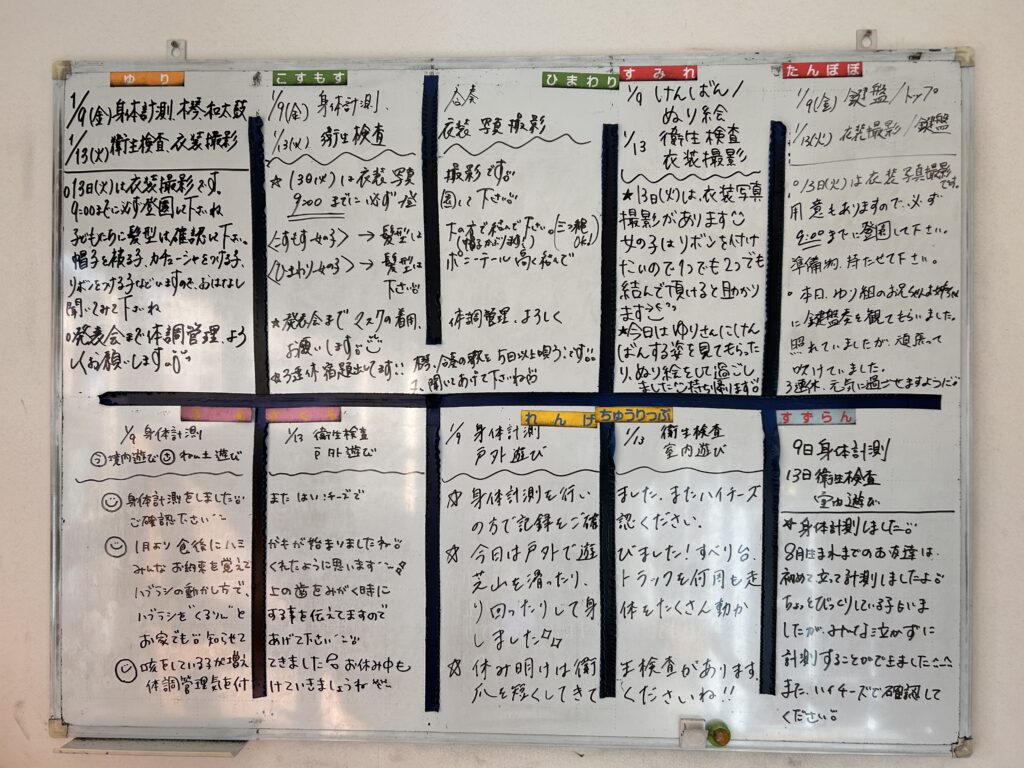 ゆり
1/9(金)身体計測、木琴、和太鼓
1/13(火)衛生検査、衣装撮影
○13日(火)は衣装撮影です。
9:00までに必ず登園して下さいね
子どもたちに髪型は確認して下さい。
帽子を被る子、カチューシャをつける子、
リボンをつける子などいますので、おはなし
聞いてみて下さいね
○発表会まで体調管理、よろ
しくお願いします。
こすもす
1/9(金) 身体計測、
1/13(火) 衛生検査
☆13日(火)は衣装写真
9:00 までに必ず登
〈こすもす女の子〉→ 髪型は
〈ひまわり女の子〉→ 髪型は
下さい
★発表会までマスクの着用、
お願いします
☆3連休宿題出してます!!
ひまわり
合奏
衣装 写真 撮影
撮影です
園して下さい
ポニーテール 高く結んで
体調管理、よろしく
合奏の歌を5日以上唄うです
聞いてあげて下さいね
すみれ
1/9 けんばん/
ぬり絵
1/13 衛生検査
衣装撮影
★13日(火)は、衣装写真
撮影があります
女の子はリボンを付け
たいので1つでも2つでも
結んで頂けると助かり
ます
★今日はゆりさんにけん
ばんする姿を見てもらった
り、ぬり絵をして過ごし
ました 持ち帰ります
たんぽぽ
1/9(金) 鍵盤/トップ
1/13(火) 衣装撮影/鍵盤
○13日(火)は衣装写真撮影
です。
用意もありますので、必ず
9:00までに登園して下さい。
準備物、持たせて下さい。
・本日、ゆり組のお兄ちゃんお姉ちゃん
に鍵盤奏を観てもらいました。
照れていましたが、頑張って
吹けていました。
3連休、元気に過ごせますように
1/9 身体計測
②境内遊び ③ねん土遊び
身体計測をしました
ご確認下さい
1月より食後にハミ
みんなお約束を覚えて
ハブラシの動かし方で、
ハブラシを"くるりん"と
お家でも 知らせて
咳をしている子が増え
体調管理気を付
1/13 衛生検査
戸外遊び
またはいチーズで
がきが始まりましたね
くれたように思います
上の歯をみがく時に
する事を伝えてますので
あげて下さい
てきました お休み中も
けていきましょうね
れんげ
1/9 身体計測
戸外遊び
☆ 身体計測を行い
の方で記録をご確
☆ 今日は戸外で遊
芝山を滑ったり、
り回ったりして身
しました
☆ 休み明けは衛
爪を短くしてきて
ちゅうりっぷ
1/13 衛生検査
室内遊び
ました。またハイチーズ
認ください。
びました!すべり台、
トラックを何周も走
体をたくさん動か
生検査があります。
くださいね!!
すずらん
9日身体計測
13日衛生検査
室内遊び
★身体計測しました
8月生まれまでのお友達は、
初めて立って計測しましたよ
ちょっとびっくりしている子もいま
したが、みんな泣かずに
計測することができました
また、ハイチーズで確認して
ください